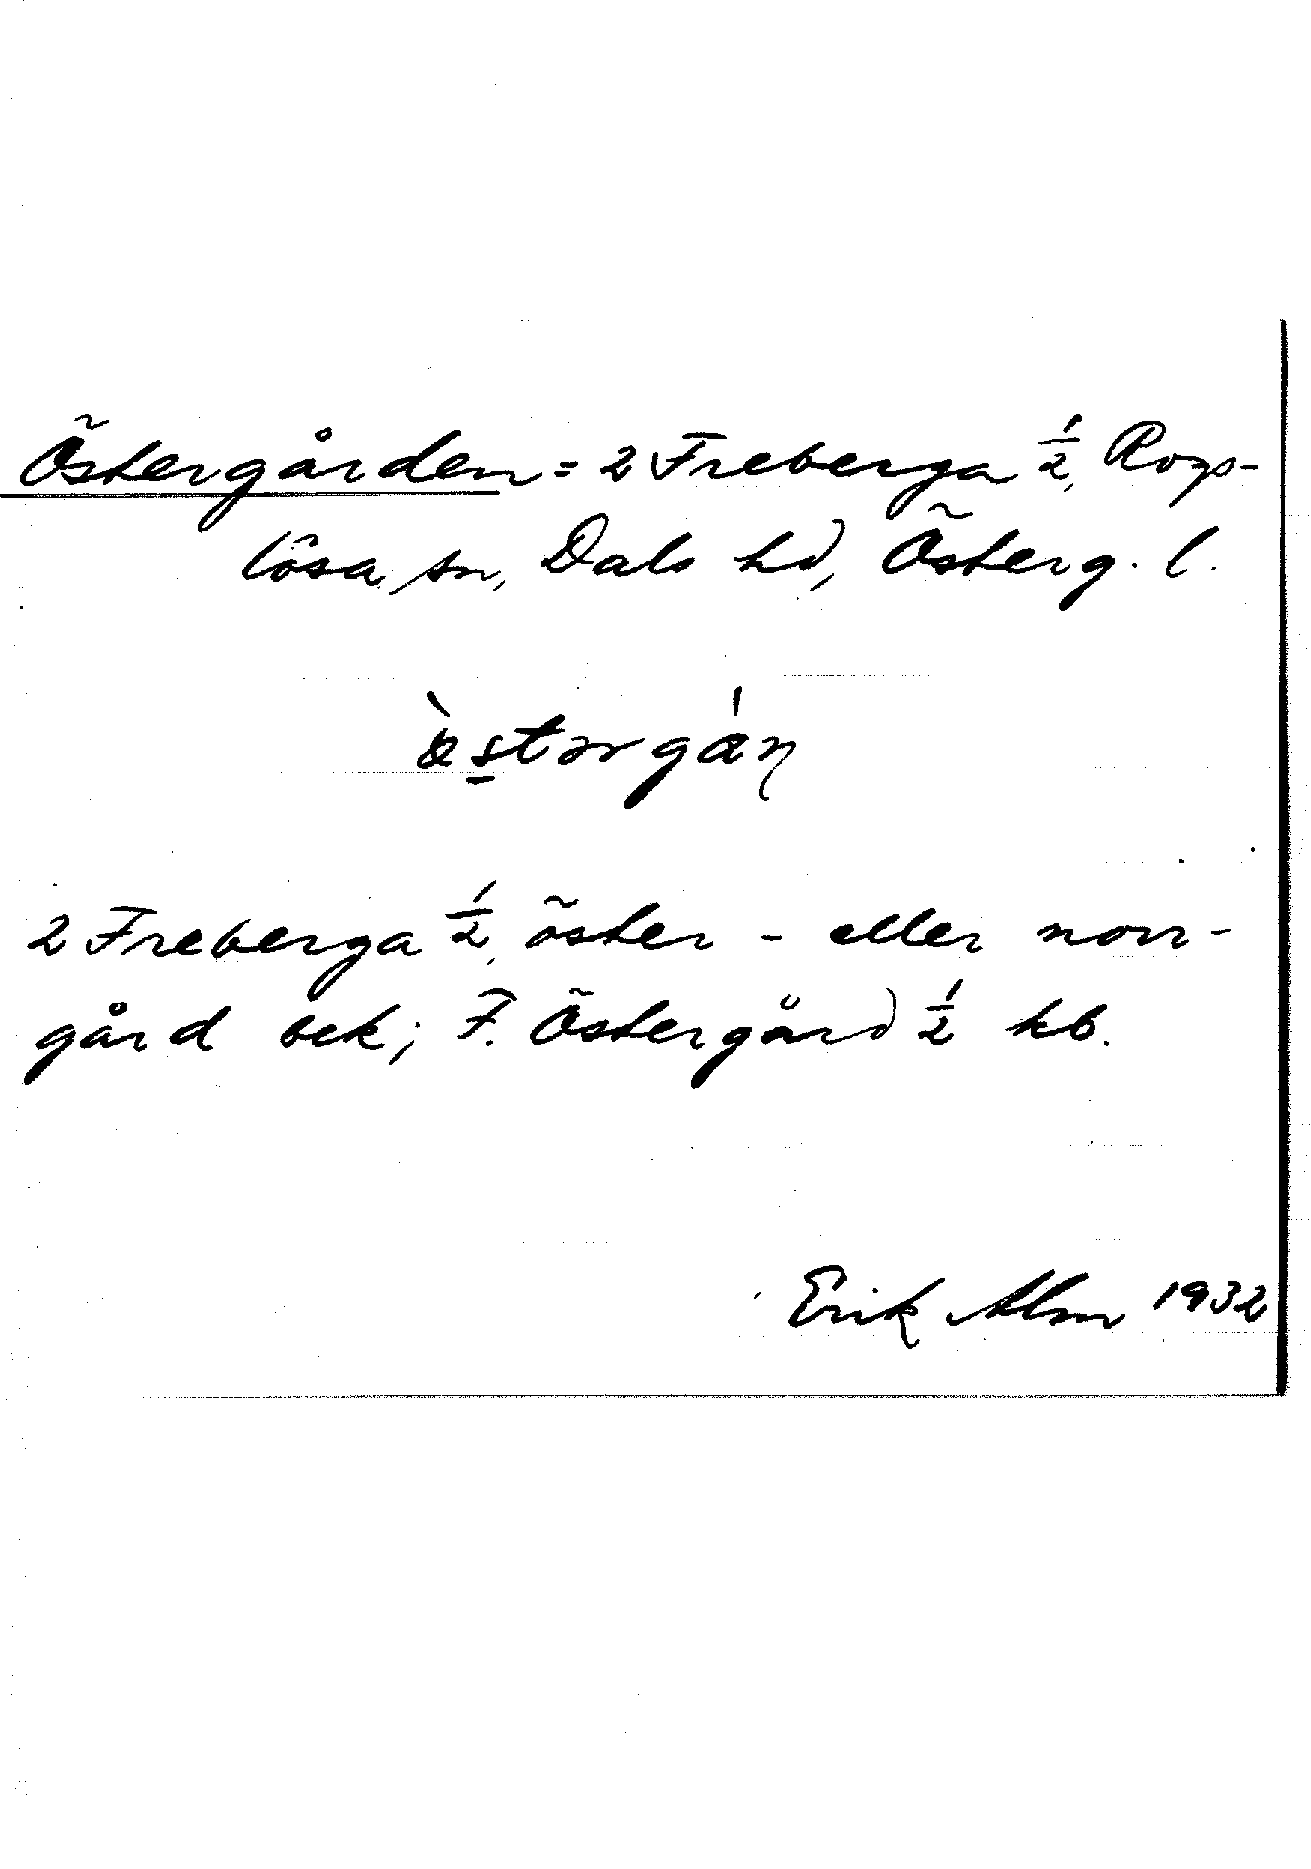 Östergården = 2 Freberga 1/2, Rogs-
lösa sn, Dals hd, Österg. l.
2 Freberga 1/2, öster- eller norr-
gård bek; F. Östergård 1/2 kb.
Erik Alm 1932